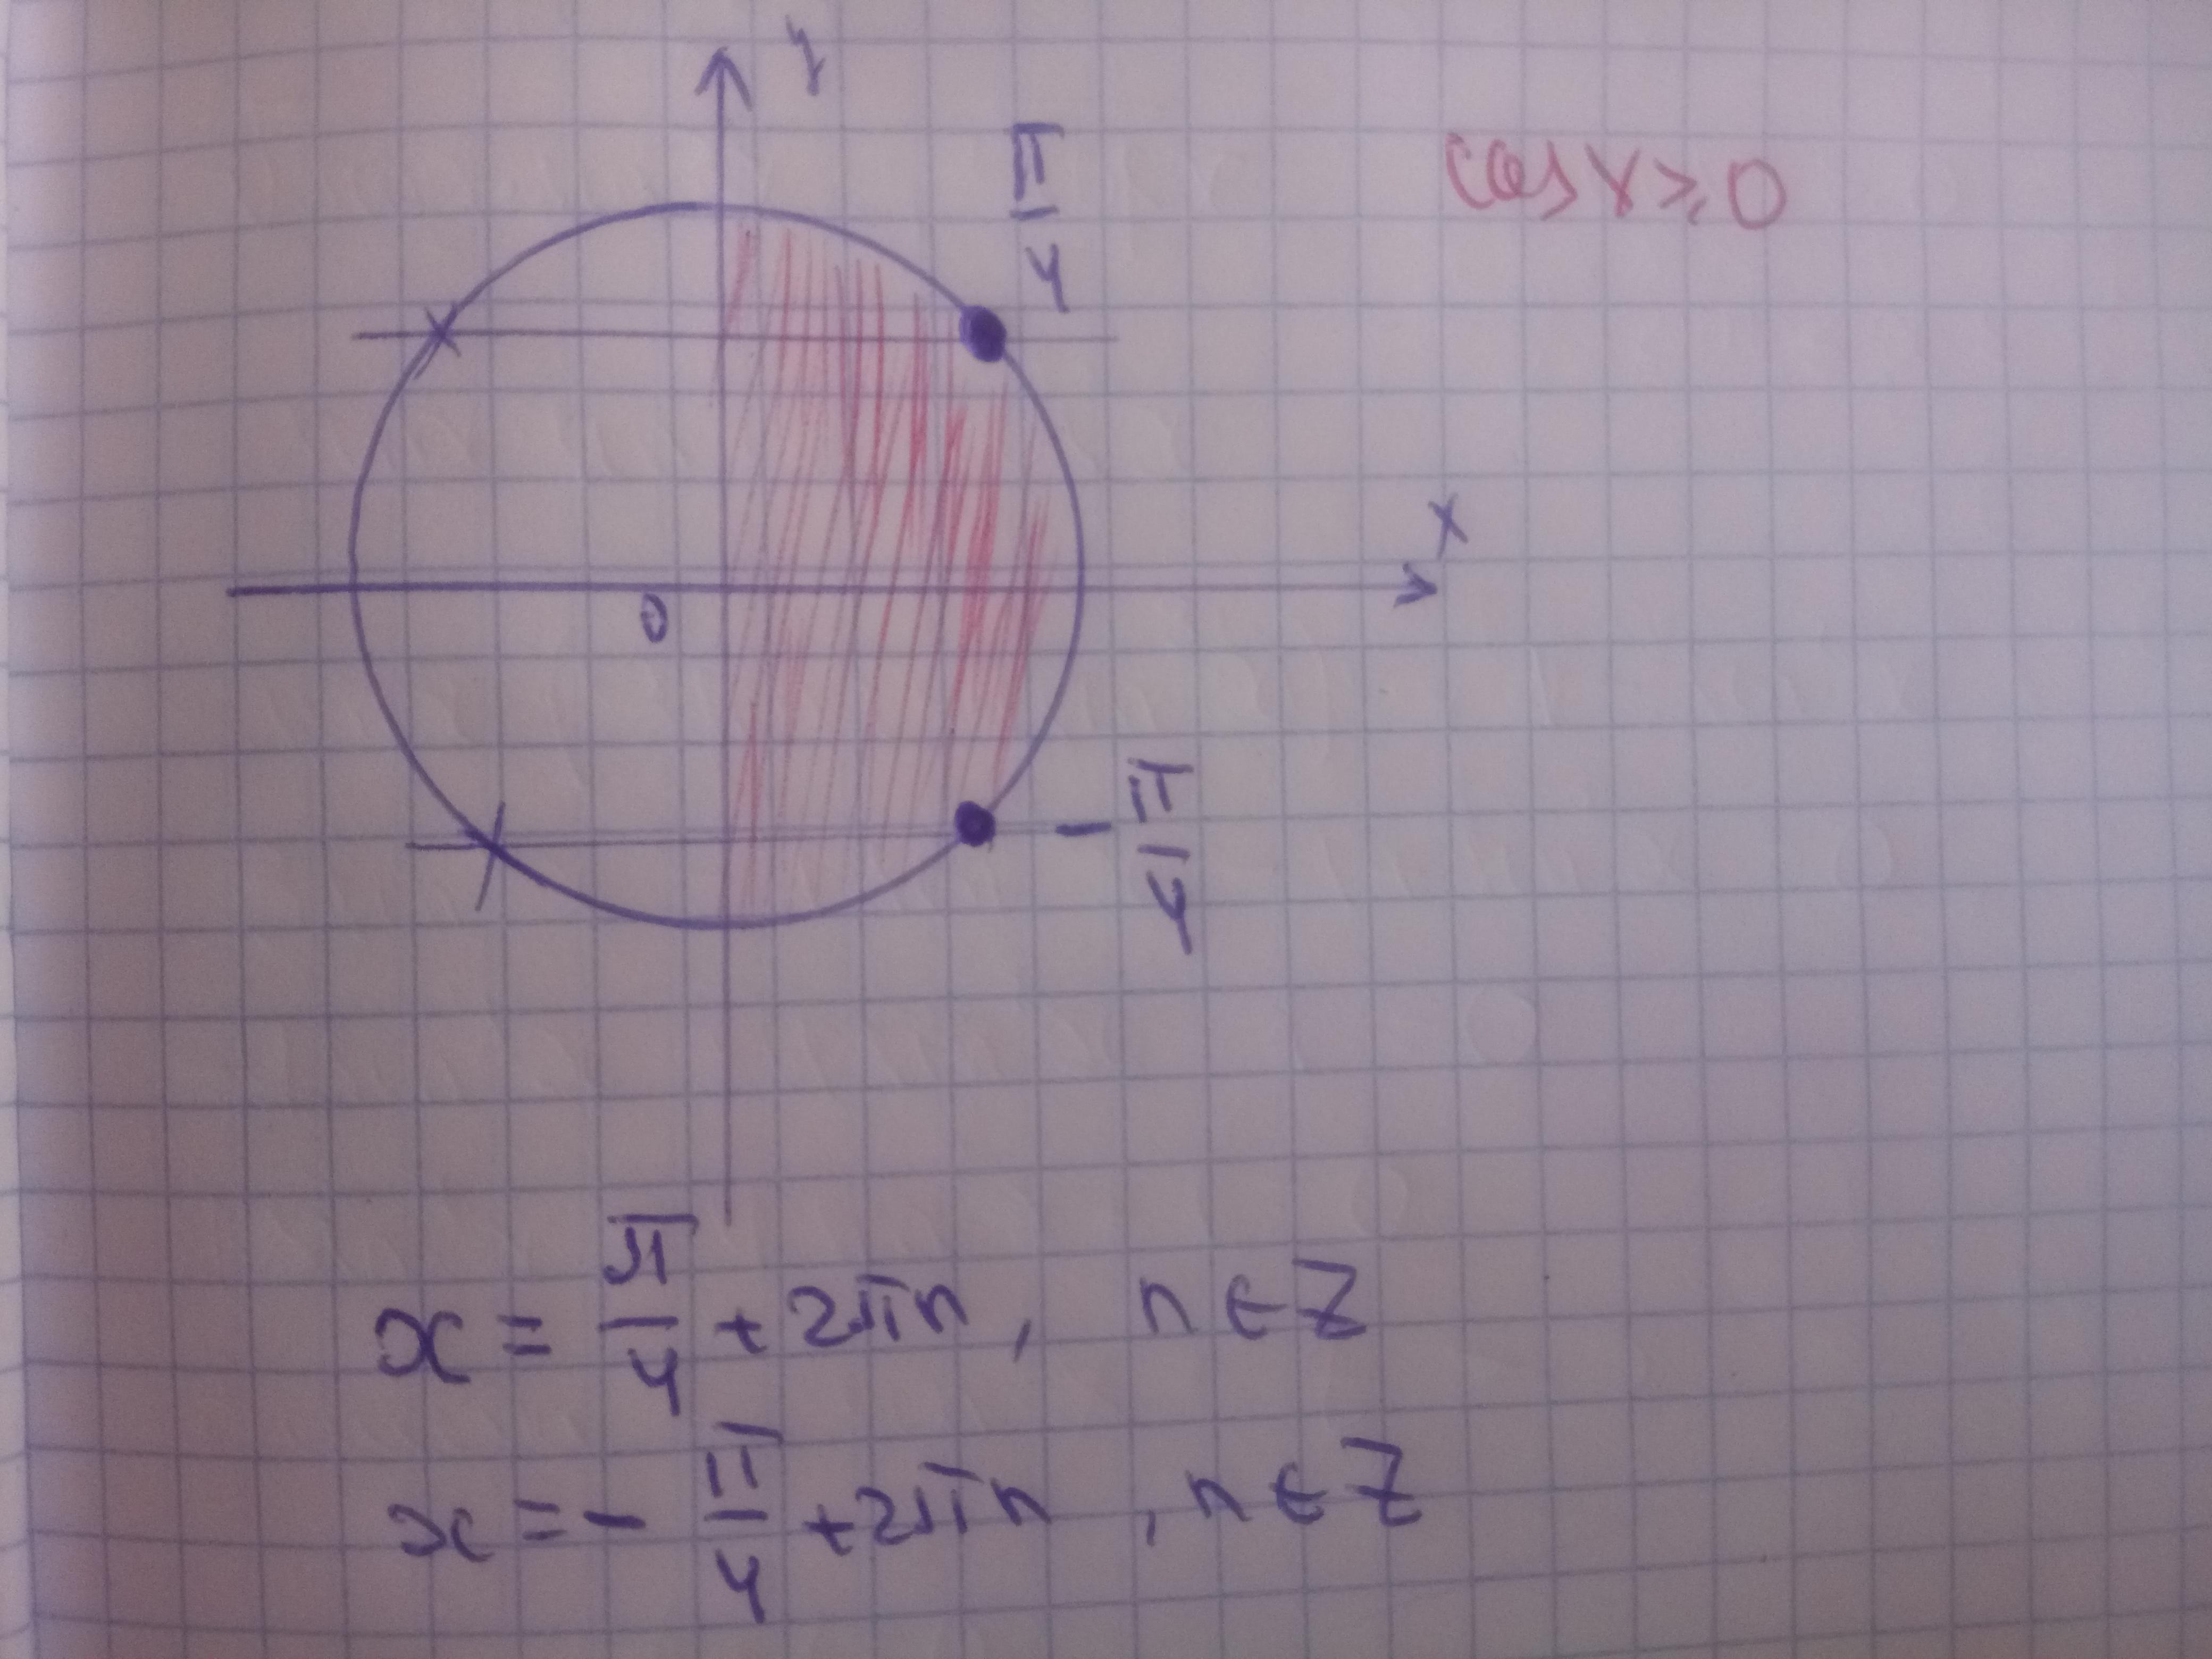 y
π/4
cos x ≥ 0
x
0
-π/4
x = π/4 + 2πn, n ∈ Z
x = - π/4 + 2πn, n ∈ Z